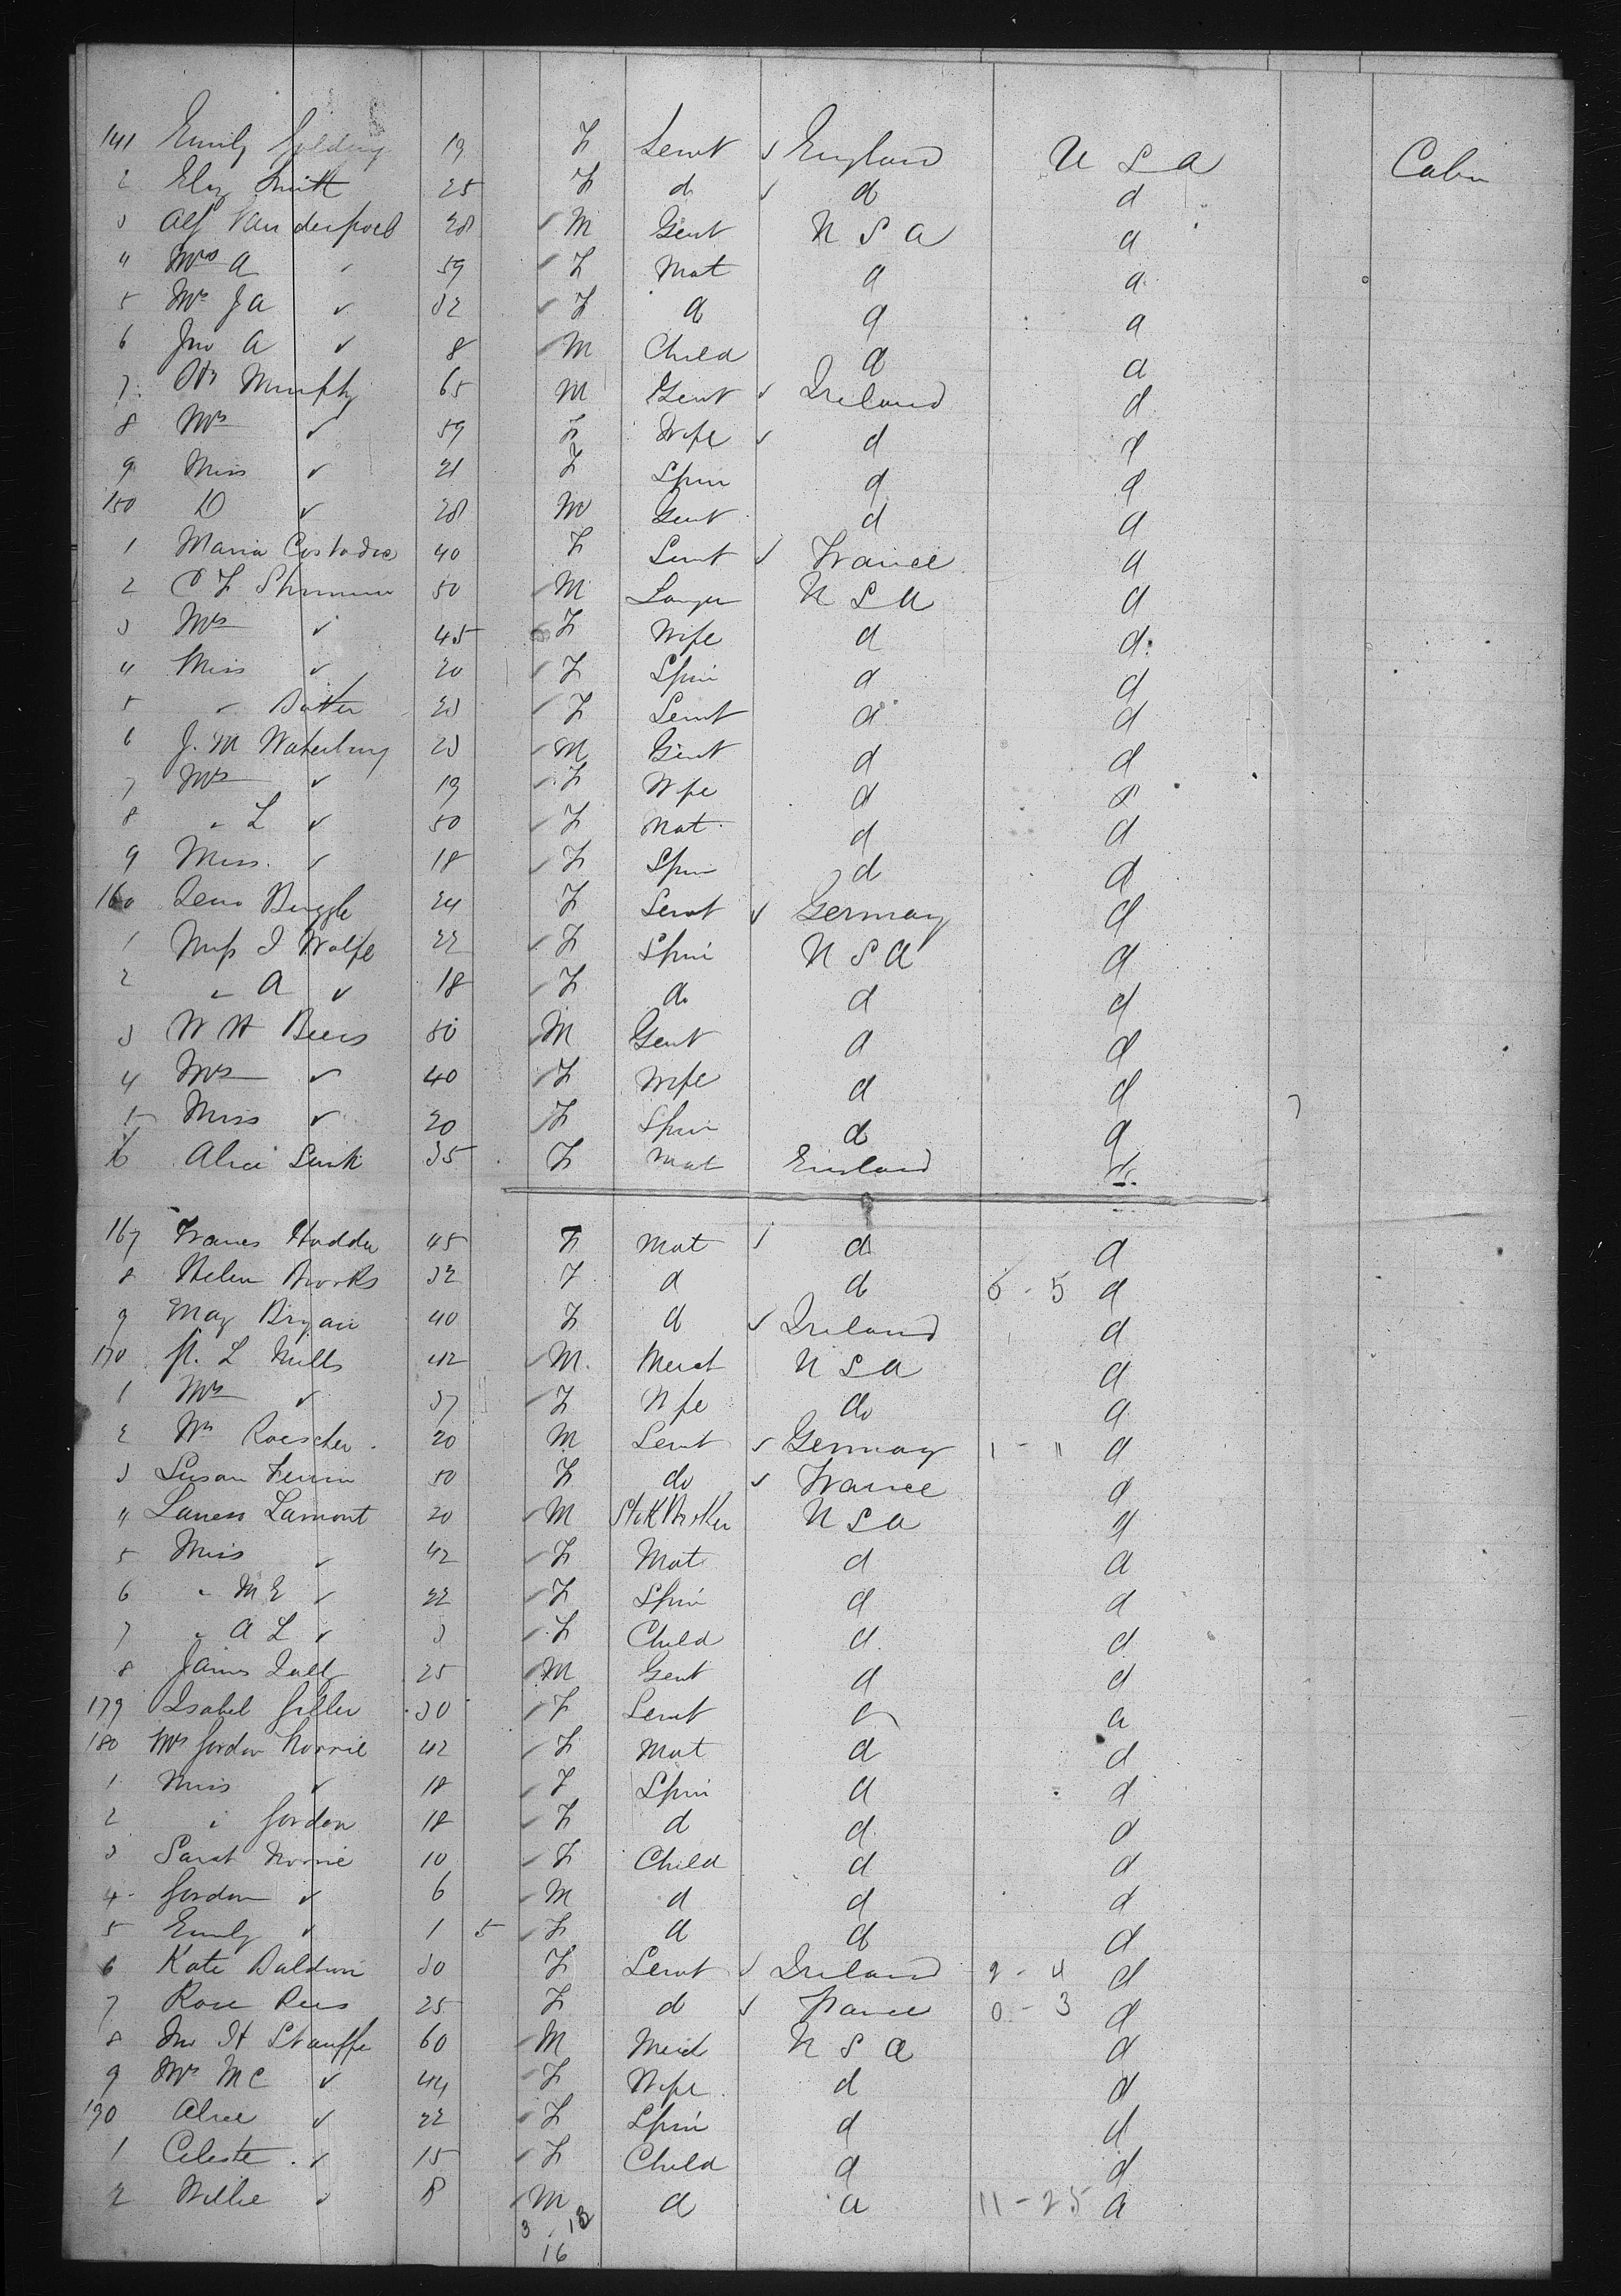 141 Emily Golding 19 F Servt ✓ England U S A Cabin
2 Eliz Smith 25 F d ✓ d d
3 Alf Vanderpoel 28 M Gent U S A d
4 Mrs A " 59 F Mat d d
5 Mrs J A ✓ 32 F d d d
6 Jno A ✓ 8 M Child d d
7 Murphy 65 M Gent ✓ Ireland d
8 Mrs ✓ 59 F Wife ✓ d d
9 Miss ✓ 21 F Spin d d
150 D ✓ 28 M Gent d d
1 Maria 40 F Servt ✓ France d
2 C F 50 M Lawyer U S A d
3 Mrs ✓ 45 F Wife d d
4 Miss ✓ 20 F Spin d d
5 " 23 F Servt d d
6 J. M Waterbury 23 M Gent d d
7 Mrs ✓ 19 F Wife d d
8 " L ✓ 50 F Mat d d
9 Miss ✓ 18 F Spin d d
160 24 F Servt ✓ Germany d
1 Miss I Wolfe 22 F Spin U S A d
2 " A ✓ 18 F do d d
3 W H Beers 50 M Gent d d
4 Mrs ✓ 40 F Wife d d
5 Miss ✓ 20 F Spin d d
6 Alice 35 F Mat England d
167 Frances Hodder 45 F Mat ✓ d d
8 Helen Brooks 32 F d d 6 - 5 d
9 May Bryan 40 F d ✓ Ireland d
170 L Mills 42 M Mercht U S A d
1 Mrs ✓ 37 F Wife do d
2 Wm Roescher 20 M Servt ✓ Germany 1 - 11 d
3 Susan 50 F do ✓ France d
4 Lamont 20 M U S A d
5 Miss ✓ 42 F Mat d d
6 " M E ✓ 22 F Spin d d
7 " A L ✓ 3 F Child d d
8 James 25 M Gent d d
179 Isabel 30 F Servt d d
180 Mrs Gordon Norrie 42 F Mat d d
1 Miss ✓ 18 F Spin d d
2 " Gordon 18 F d d d
3 Sarah Norrie 10 F Child d d
4 Gordon ✓ 6 M d d d
5 Emily ✓ 1 5 F d d d
6 Kate Baldwin 30 F Servt ✓ Ireland 9 - 4 d
7 Rose 25 F d ✓ France 0 - 3 d
8 Jno H Stauffe 60 M Mercht U S A d
9 Mrs M C ✓ 44 F Wife d d
190 Alice ✓ 22 F Spin d d
1 Celeste ✓ 15 F Child d d
2 Willie ✓ 8 M d d 11 - 25 d
3 . 13
16